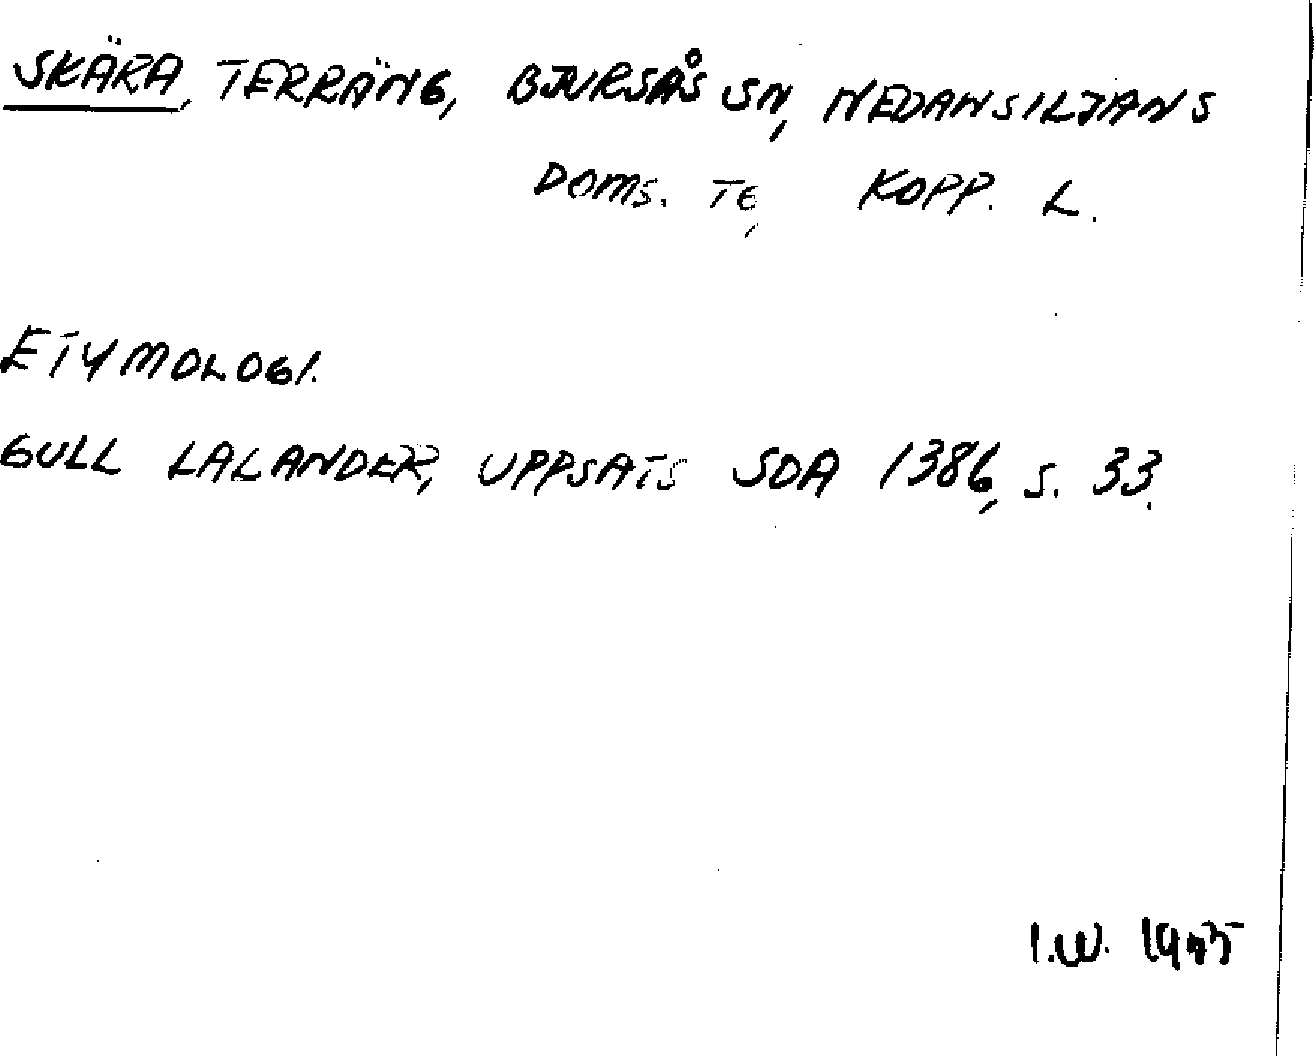 SKÄRA, TERRÄNG, BJURSÅS SN, NEDANSILJANS
DOMS. TG, KOPP. L.
ETYMOLOGI.
GULL LALANDER, UPPSATS SOA 1386, S. 33.
I.W.